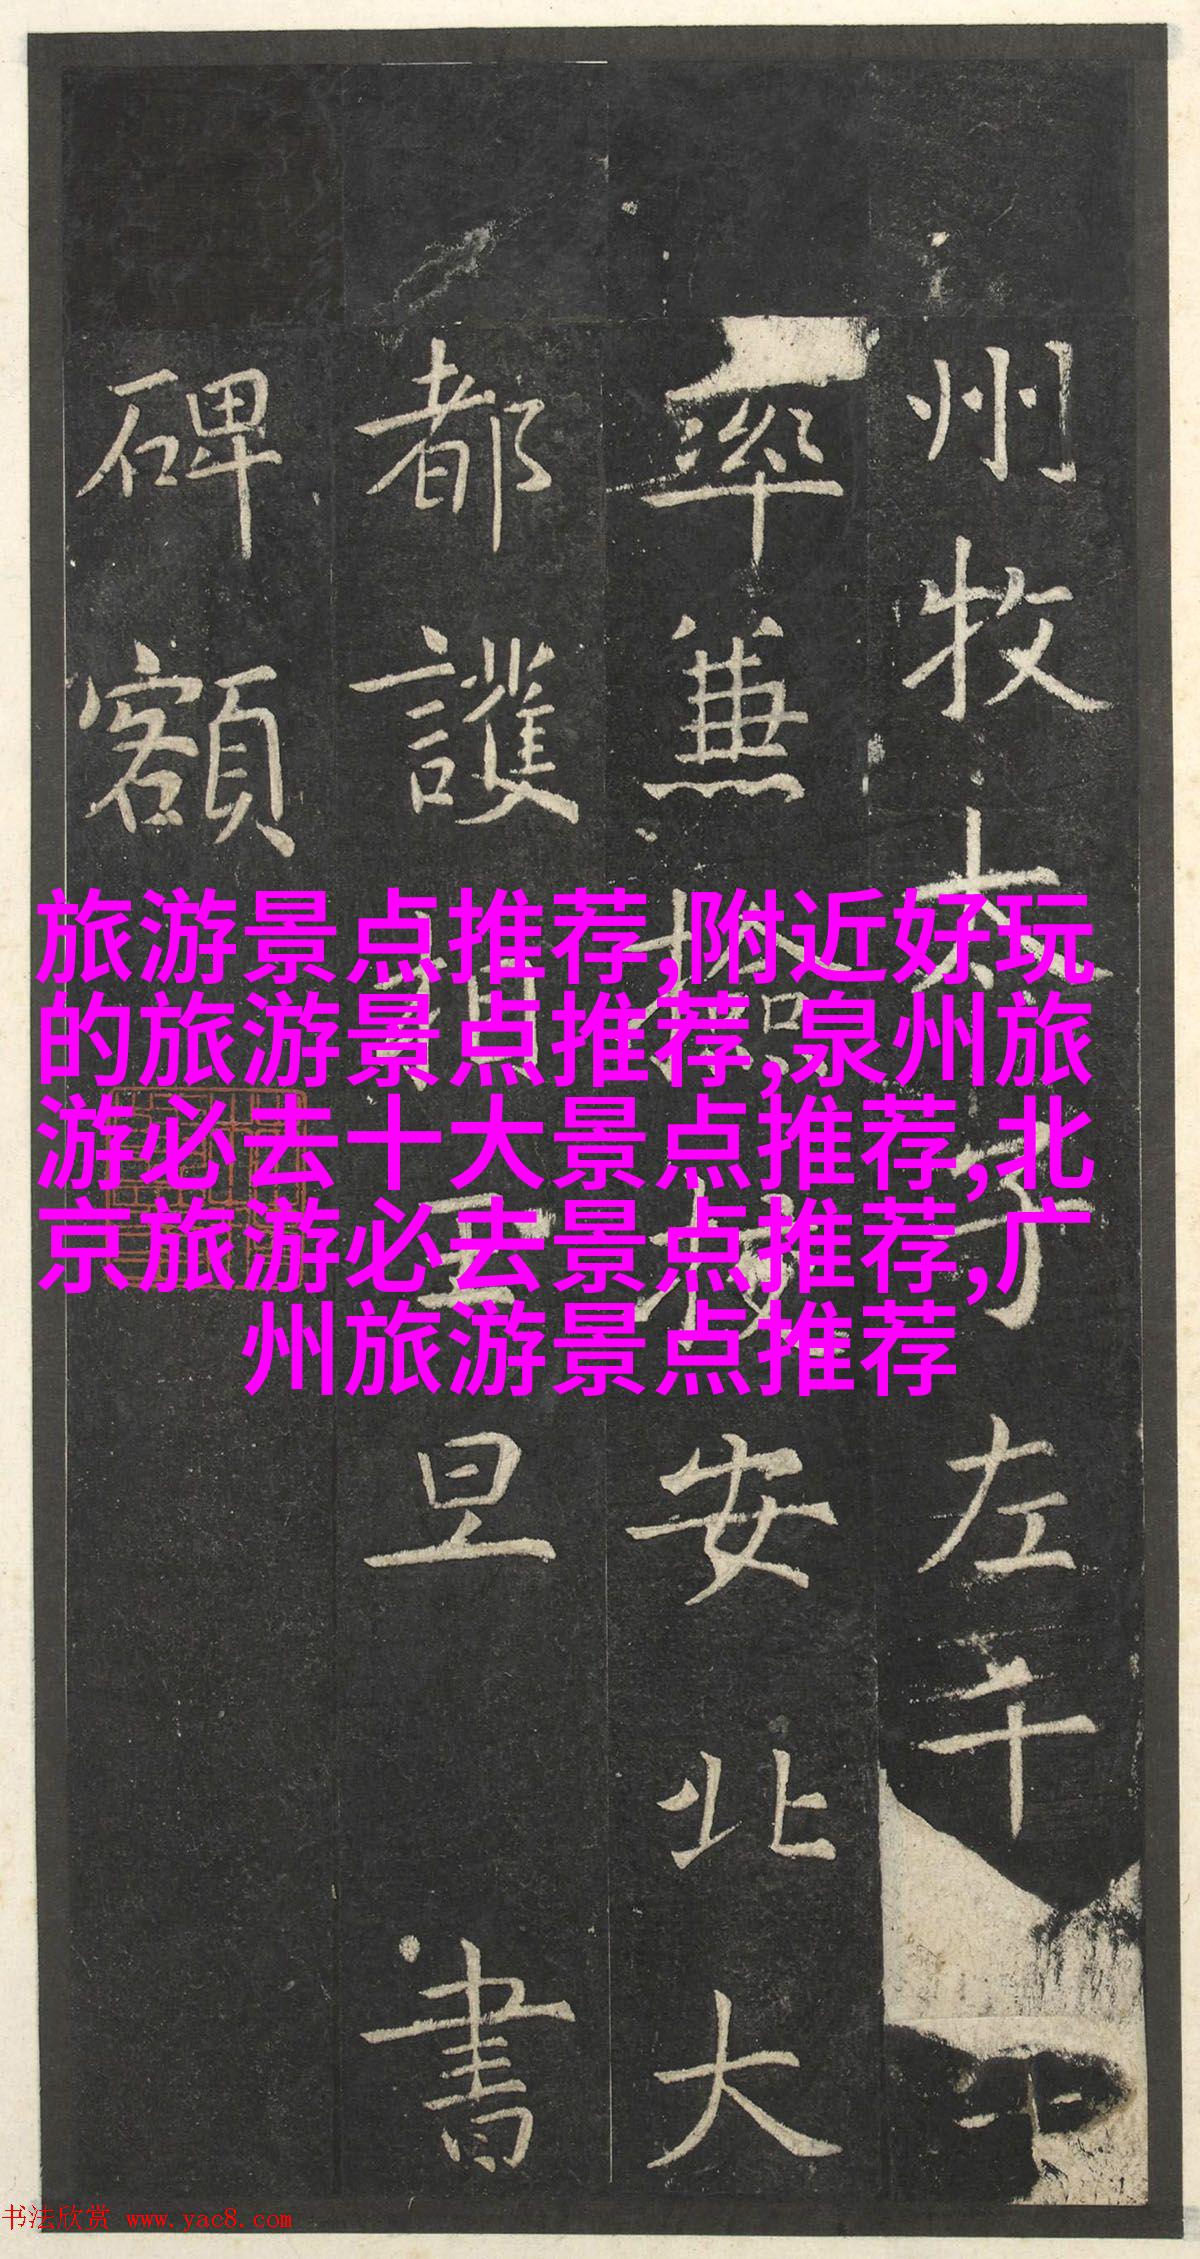 州牧太子左千
率兼檢校安北大
都護相王旦書
碑額
旅游景点推荐,附近好玩
的旅游景点推荐,泉州旅
游必去十大景点推荐,北
京旅游必去景点推荐,广
州旅游景点推荐
书法欣赏 www.yac8.com